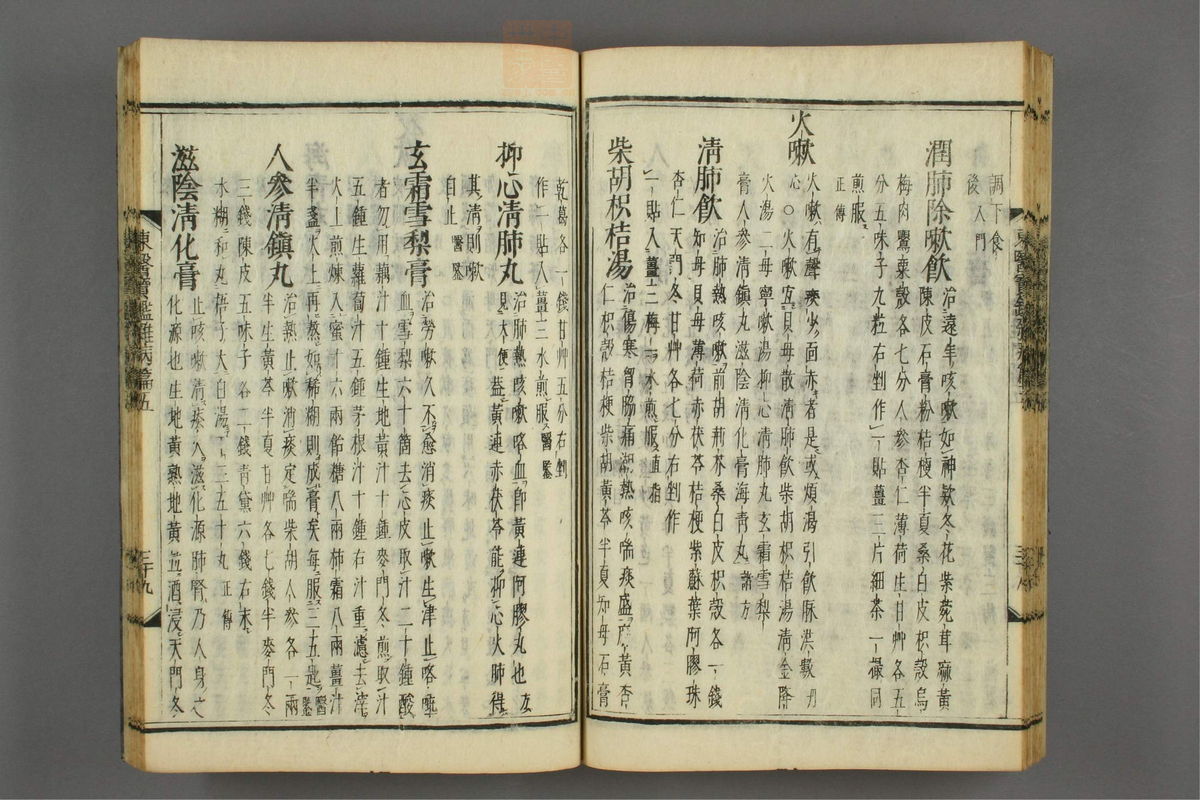 調下食
後入門
潤肺除嗽飲 治遠年咳嗽如神欵冬花紫菀茸麻黃
陳皮石膏粉桔梗半夏桑白皮枳殼烏
梅肉罌粟殼各七分人參杏仁薄荷生甘艸各五
分五味子九粒右剉作一貼薑三片細茶一撮同
煎服
正傳
火嗽
火嗽有聲痰少面赤者是或煩渴引飲脉洪數丹
心○火嗽宜貝母散清肺飲柴胡枳桔湯清金降
火湯二母寧嗽湯抑心清肺丸玄霜雪梨
膏人參清鎭丸滋陰清化膏海青丸諸方
清肺飲 治肺熱咳嗽前胡荊芥桑白皮枳殼各一錢
知母貝母薄荷赤茯苓桔梗紫蘇葉阿膠珠
杏仁天門冬甘艸各七分右剉作
一貼入薑三梅一水煎服直指
柴胡枳桔湯 治傷寒胷脇痛潮熱咳喘痰盛麻黃杏
仁枳殼桔梗柴胡黃芩半夏知母石膏
乾葛各一錢甘艸五分右剉
作一貼入薑三水煎服醫鑑
抑心清肺丸 治肺熱咳嗽咯血即黃連阿膠丸也方
見大便蓋黃連赤茯苓能抑心火肺得
其清則嗽
自止醫鑑
玄霜雪梨膏 治勞嗽久不愈消痰止嗽生津止咯唾
血雪梨六十箇去心皮取汁二十鍾酸
者勿用藕汁十鍾生地黃汁十鍾麥門冬煎取汁
五鍾生蘿蔔汁五鍾茅根汁十鍾右汁重濾去滓
火上煎煉入蜜十六兩飴糖八兩柿霜八兩薑汁
半盞火上再熬如稀糊則成膏矣每服三五匙醫鑑
人參清鎭丸 治熱止嗽消痰定喘柴胡人參各一兩
半生黃芩半夏甘艸各七錢半麥門冬
三錢陳皮五味子各二錢青黛六錢右末
水糊和丸梧子大白湯下三五十丸正傳
滋陰清化膏 止咳嗽清痰火滋化源肺腎乃人身之
化源也生地黃熟地黃並酒浸天門冬
東醫寶鑑雜病篇五
三十九